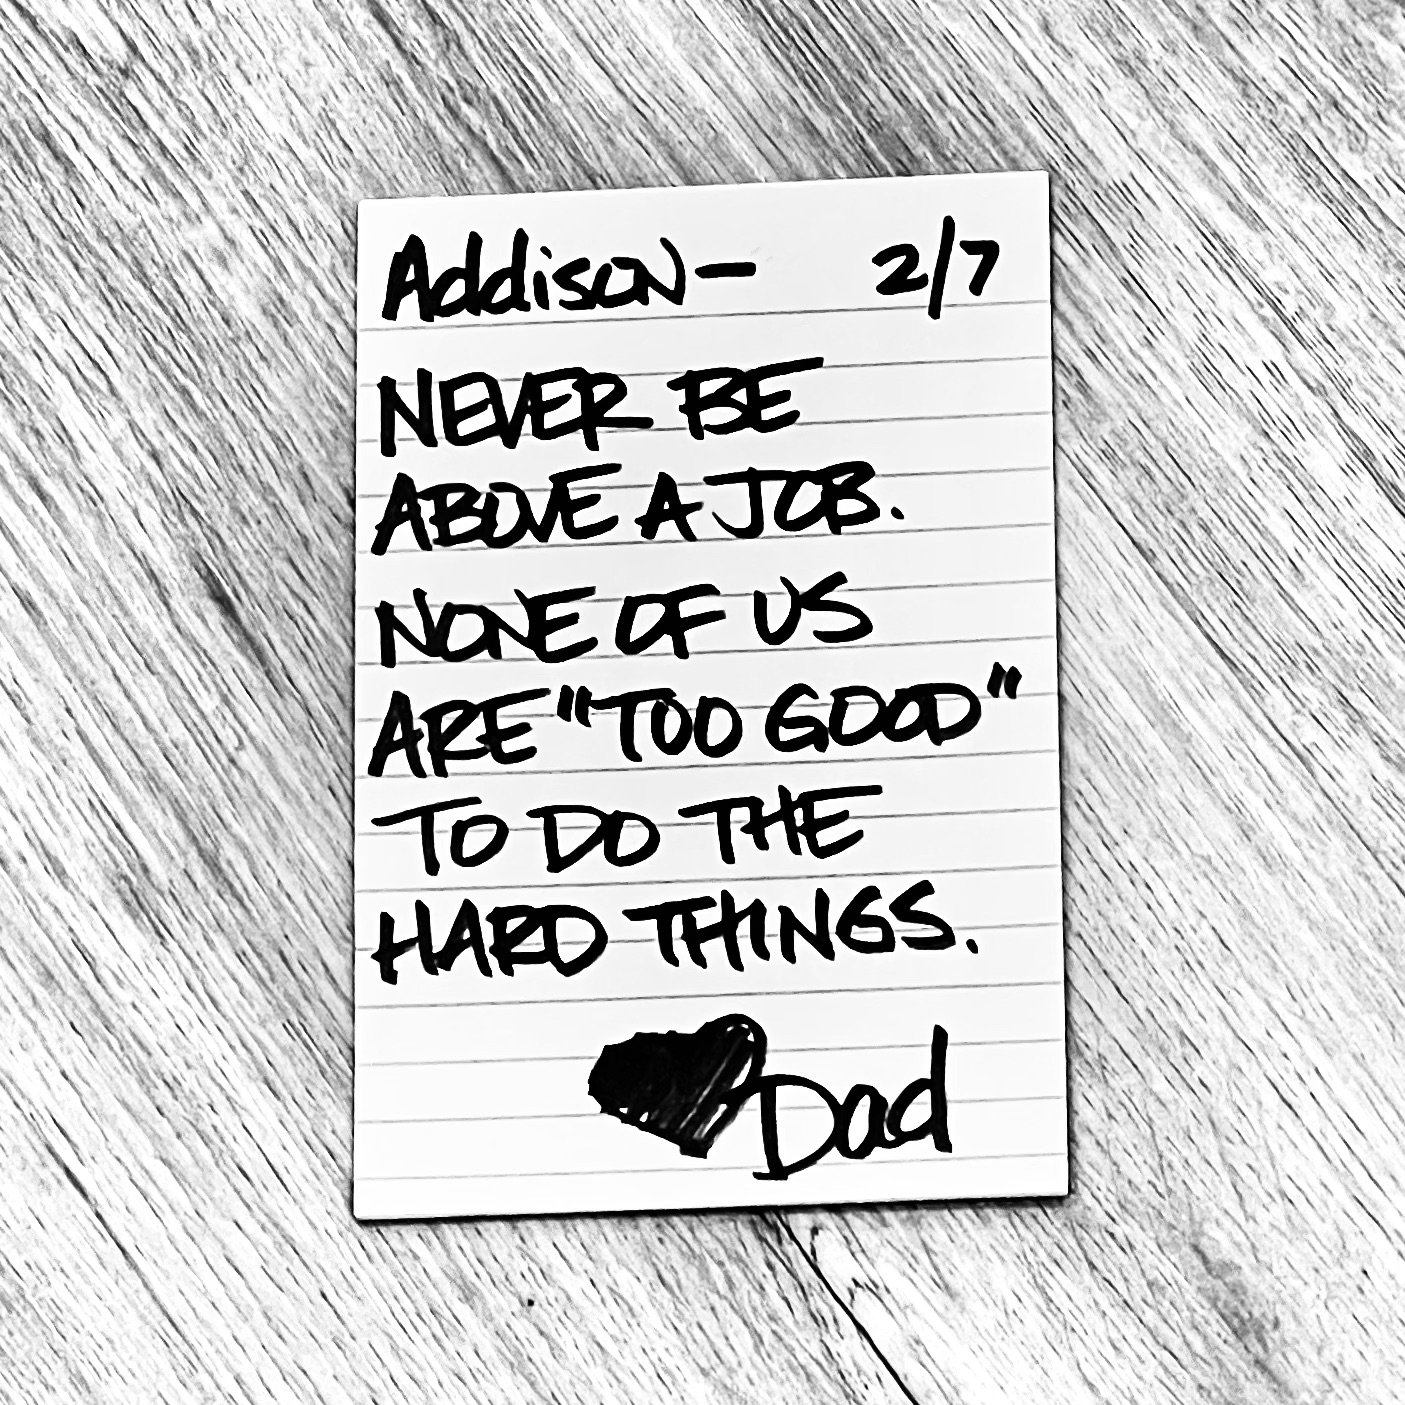 Addison- 2/7
NEVER BE
ABOVE A JOB.
NONE OF US
ARE "TOO GOOD"
TO DO THE
HARD THINGS.
Dad